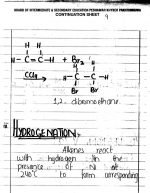 BOARD OF INTERMEDIATE & SECONDARY EDUCATION PESHAWAR
CONTINUATION SHEET
9
H H
H-C=C-H + Br₂
CCl₄ → H-C-C-H
Br Br
1,2-dibromoethane.
HYDROGENATION:-
Alkenes react
with hydrogen in the
presence of at
240°C to form corresponding